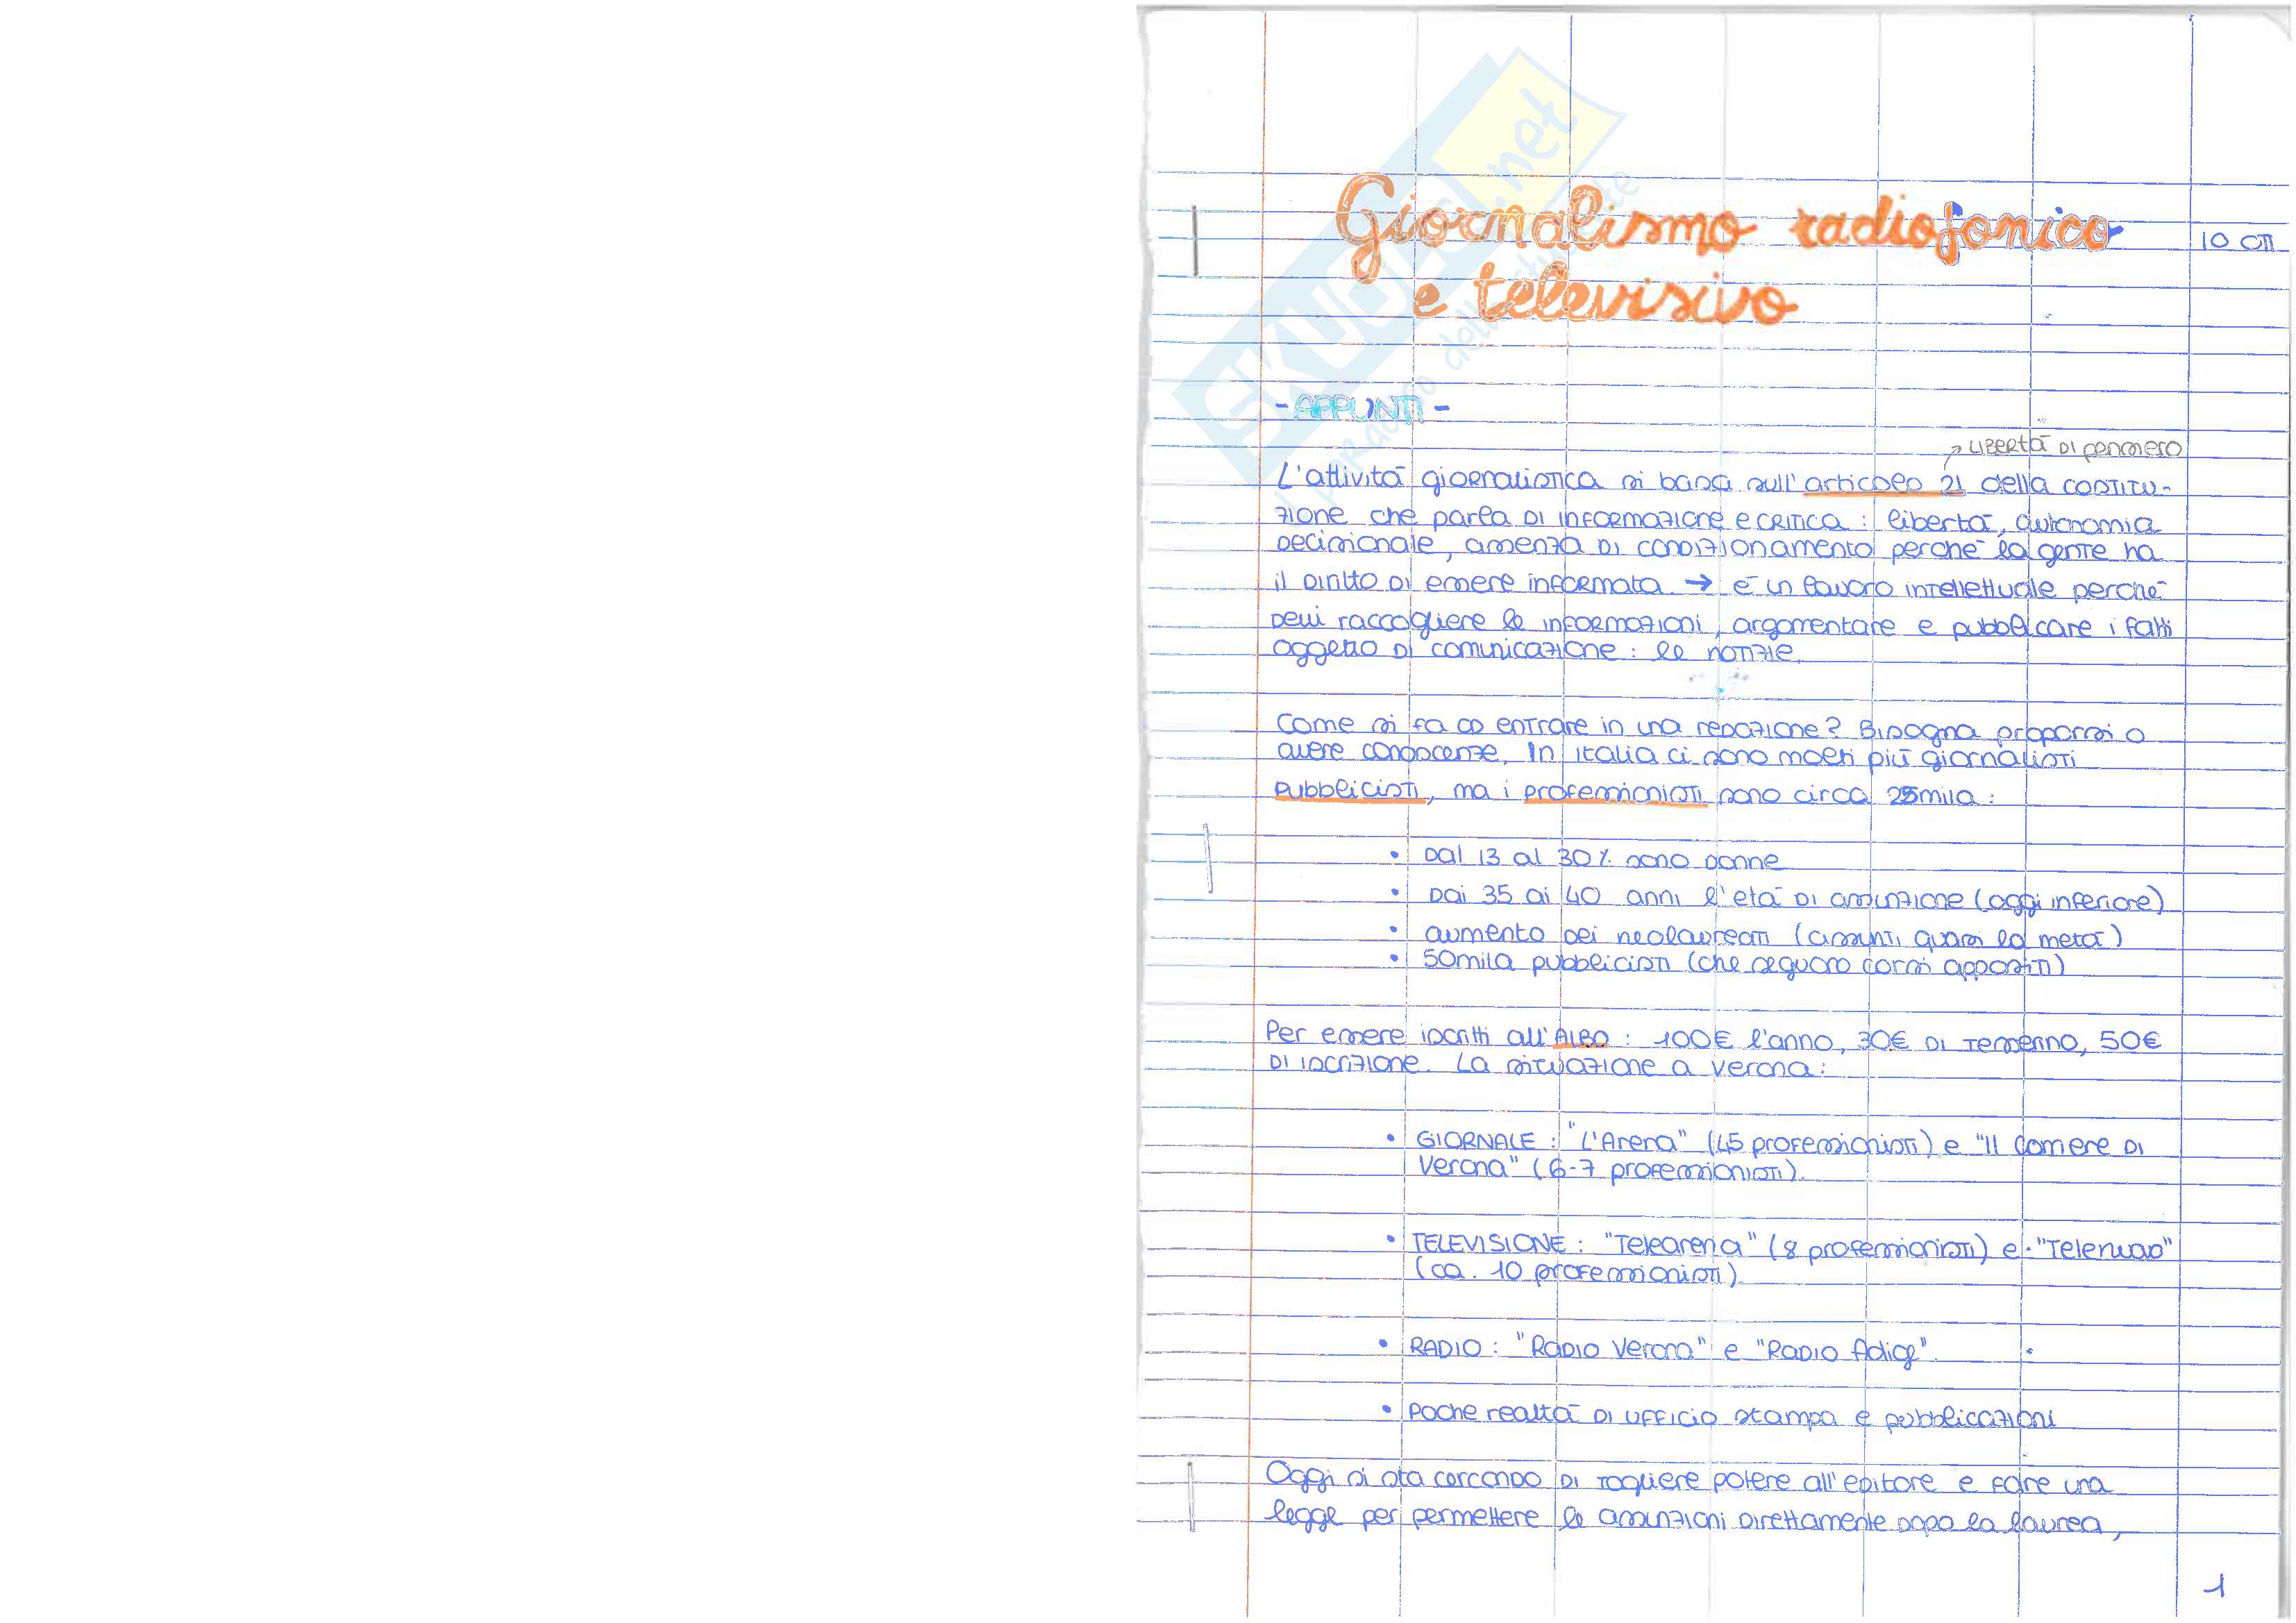 Giornalismo radiofonico
10 ott
e televisivo
- APPUNTI -
libertà di pensiero
L'attività giornalistica si basa sull'articolo 21 della costitu-
zione che parla di informazione e critica: libertà, autonomia
decisionale, assenza di condizionamento perché la gente ha
il diritto di essere informata → è un lavoro intellettuale perché
devi raccogliere le informazioni, argomentare e pubblicare i fatti
oggetto di comunicazione: le notizie.
Come si fa ad entrare in una redazione? Bisogna proporsi o
avere conoscenze. In Italia ci sono molti più giornalisti
pubblicisti, ma i professionisti sono circa 25mila:
• Dal 13 al 30% sono donne
• Dai 35 ai 40 anni l'età di assunzione (oggi inferiore)
• aumento dei neolaureati (assunti, quasi la metà)
• 50mila pubblicisti (che seguono corsi appositi)
Per essere iscritti all'ALBO: 100€ l'anno, 30€ di tesserino, 50€
di iscrizione. La situazione a Verona:
• GIORNALE: "L'Arena" (45 professionisti) e "Il Corriere di
Verona" (6-7 professionisti).
• TELEVISIONE: "Telearena" (8 professionisti) e "Telenuovo"
(ca. 10 professionisti)
• RADIO: "Radio Verona" e "Radio Adige".
• Poche realtà di ufficio stampa e pubblicazioni
Oggi si sta cercando di togliere potere all'editore e fare una
legge per permettere le assunzioni direttamente dopo la laurea,
1
SKUOLA.net
il paradiso dello studente